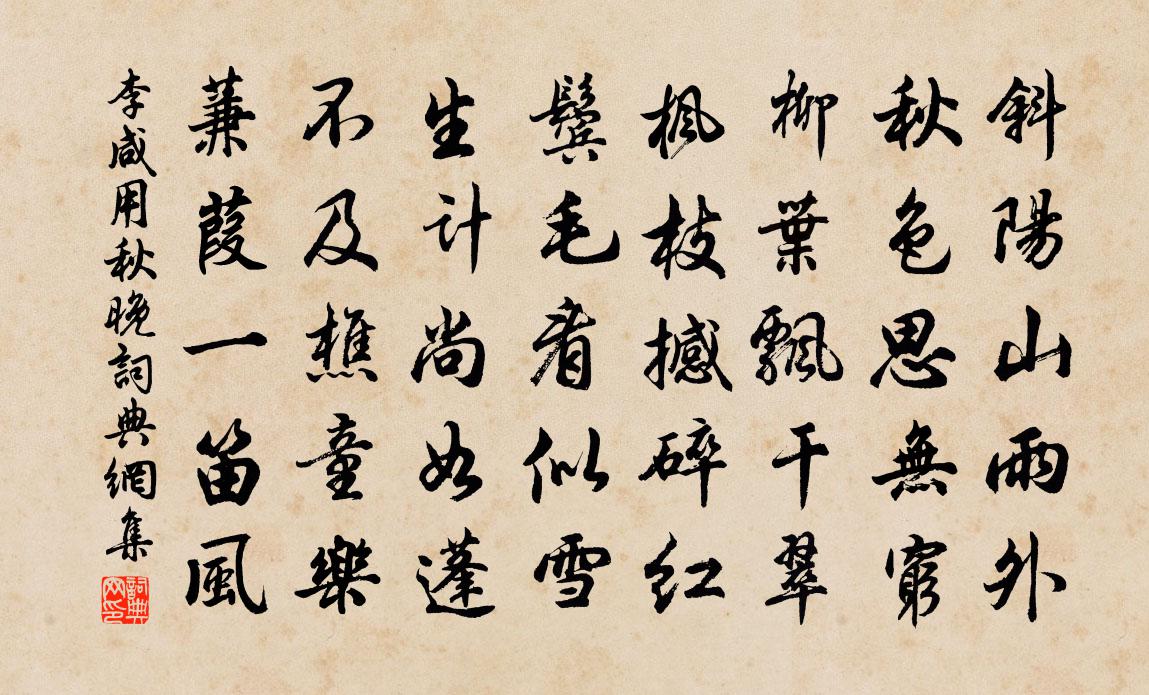 斜陽山雨外
秋色思無窮
柳葉飄干翠
楓枝撼碎红
鬓毛看似雪
生计尚如蓬
不及樵童樂
蒹葭一笛風
李咸用秋晚詞典網集
詞典
网印